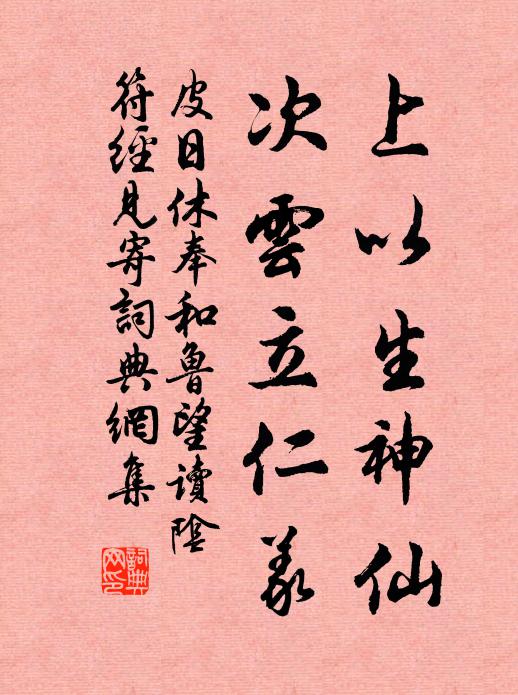 上以生神仙
次雲立仁義
皮日休奉和魯望讀陰
符經見寄詞典網集
詞典
网印